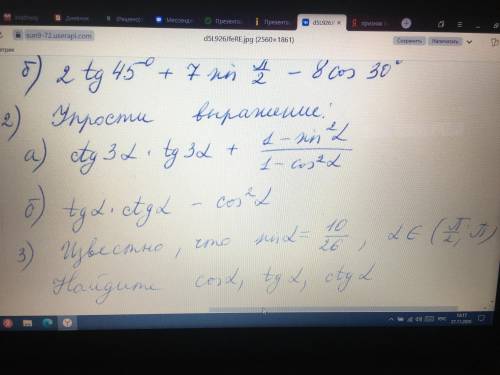 Дневник
Мессендж
Презента
Презента
d5L926J
признак
sun9-72.userapi.com
d5L926JfeRE.jpg (2560×1861)
Сохранить
Напечатать
б) 2 tg 45° + 7 sin π/2 − 8 cos 30°
2) Упрости выражение:
а) ctg 3α · tg 3α + (1 − sin²α)/(1 − cos²α)
б) tgα · ctgα − cos²α
3) Известно, что sinα = 10/26, α ∈ (π/2; π)
Найдите cosα, tgα, ctgα